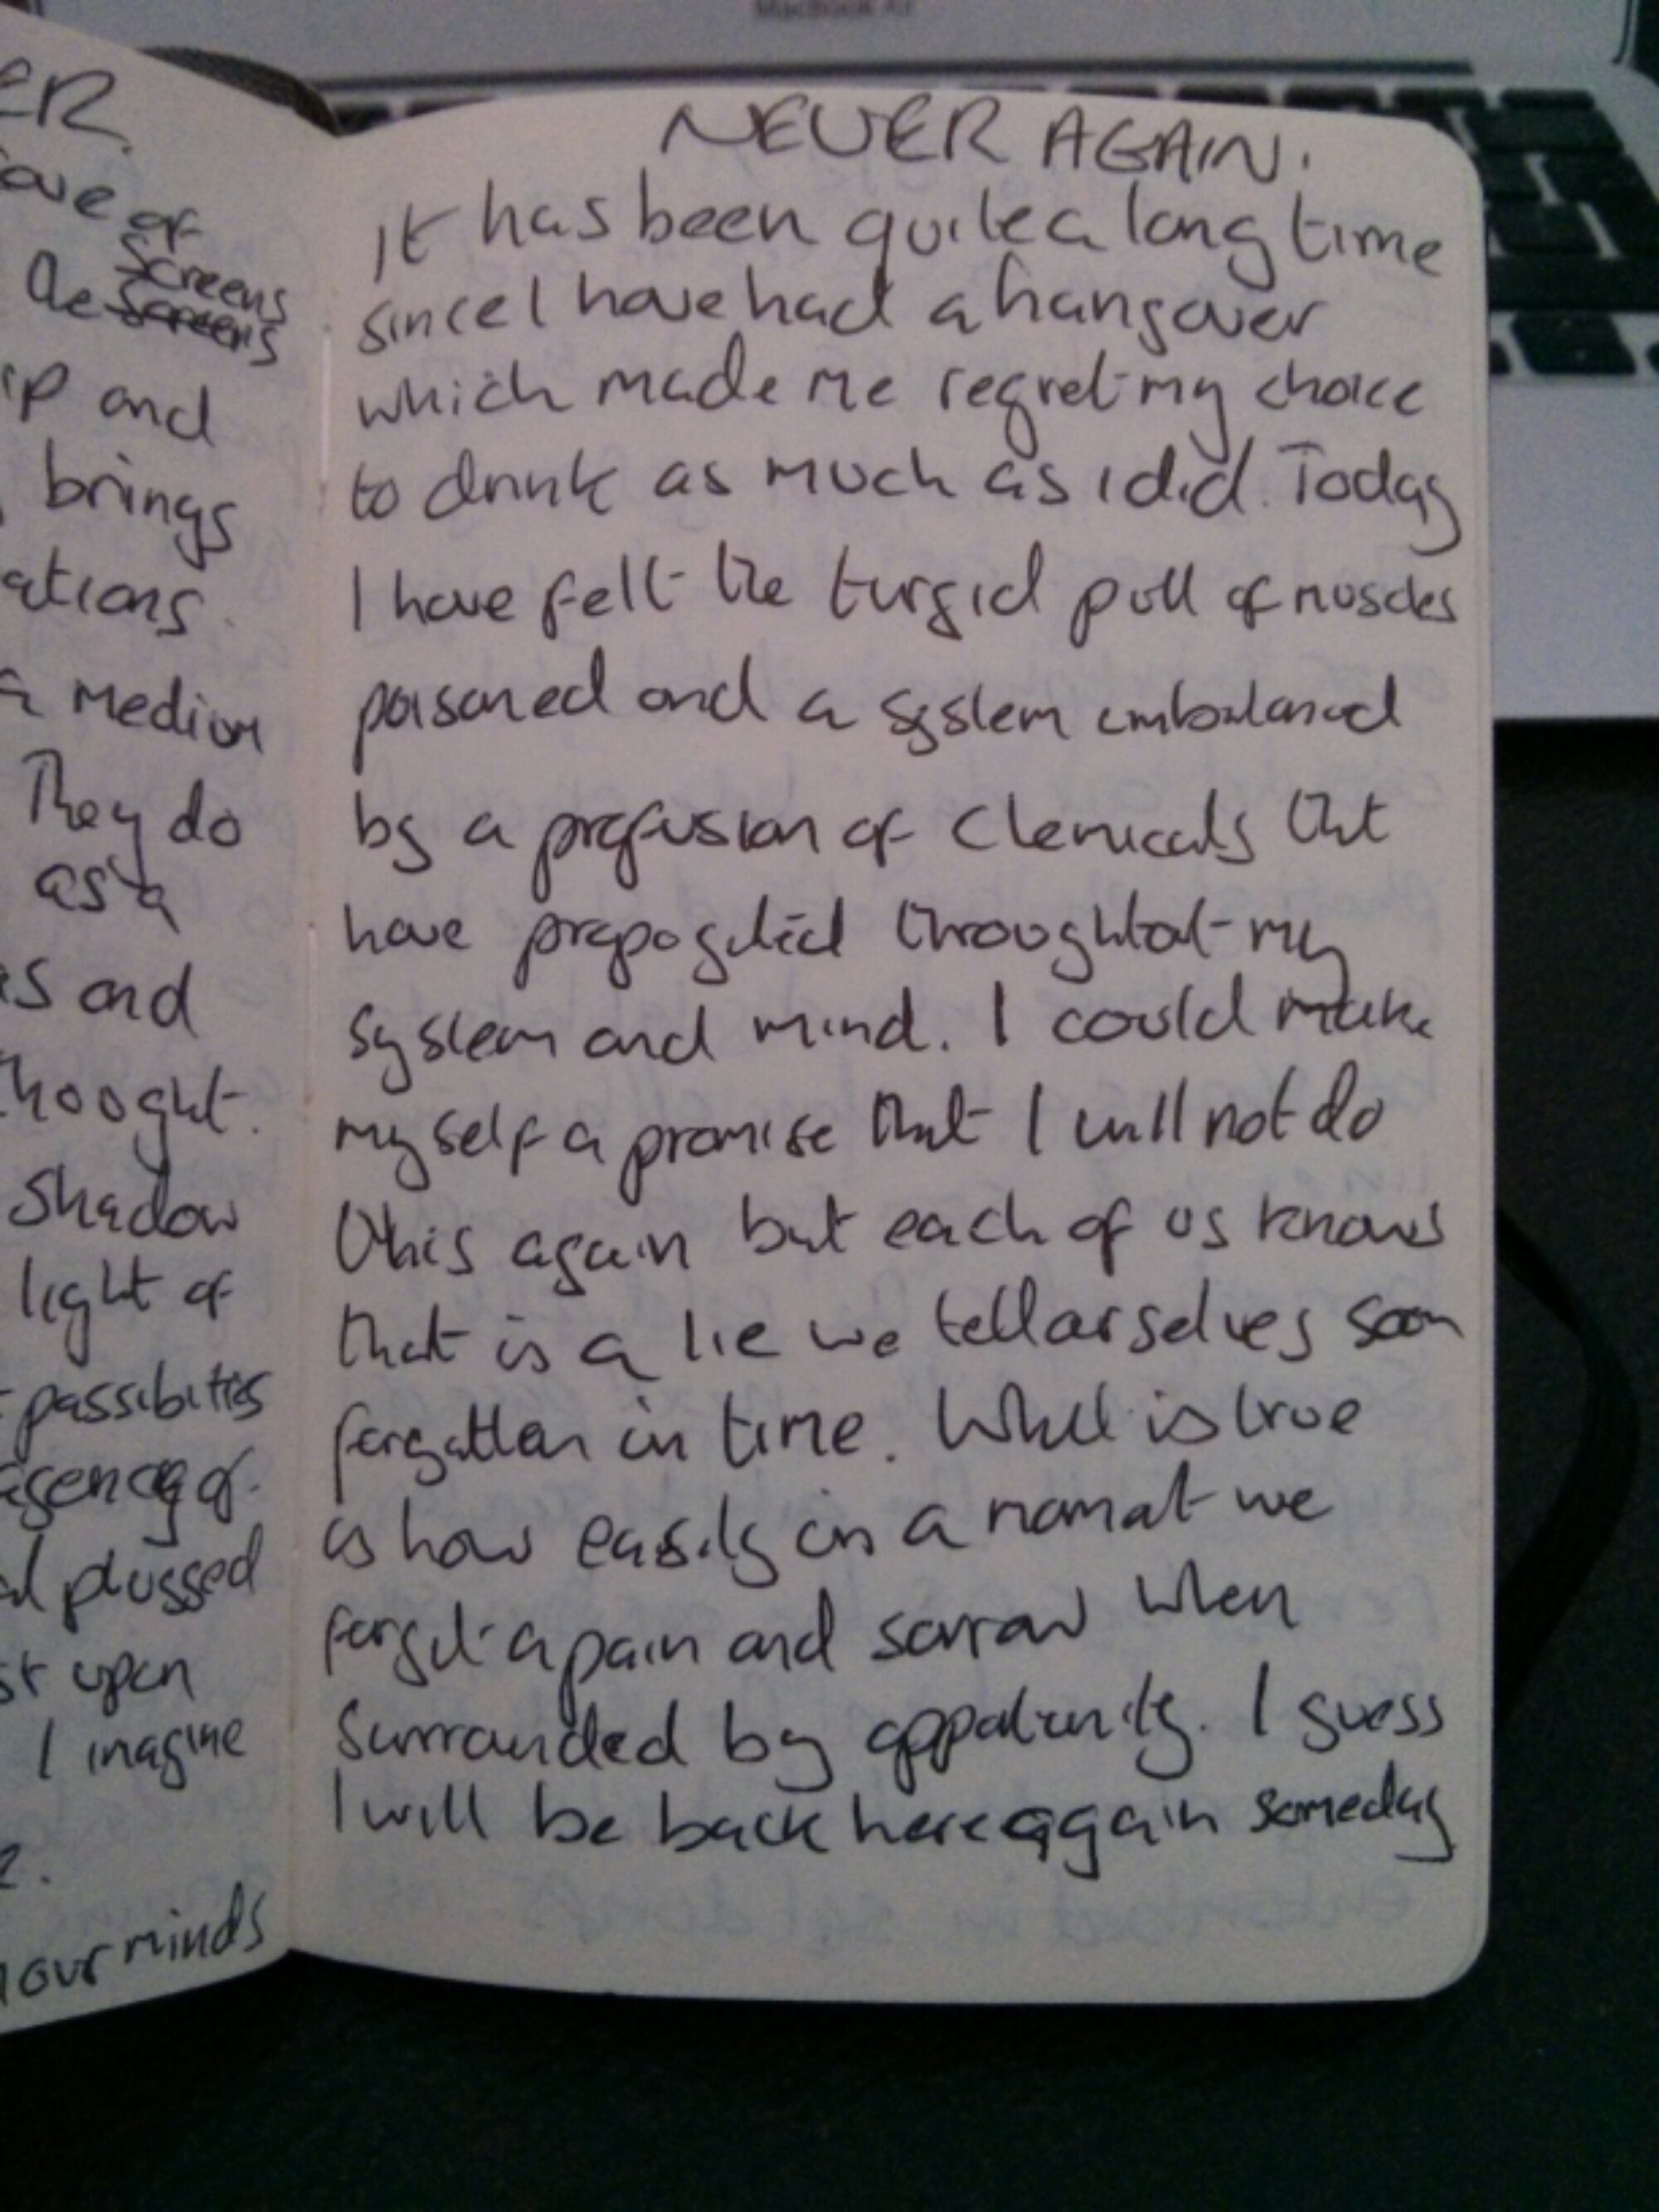 MacBook Air
ER.
of
Screens
the Screens
and
brings
ations.
a medium
They do
as a
as and
thought.
Shadow
light of
possibilities
agency of
plussed
st upon
I imagine
our minds
NEVER AGAIN.
It has been quite a long time
since I have had a hangover
which made me regret my choice
to drink as much as I did. Today
I have felt the turgid pull of muscles
poisoned and a system imbalanced
by a profusion of chemicals that
have propogated throughout my
system and mind. I could make
myself a promise that I will not do
this again but each of us knows
that is a lie we tell ourselves soon
forgotten in time. What is true
is how easily in a moment we
forget a pain and sorrow when
surrounded by oppatunity. I guess
I will be back here again someday